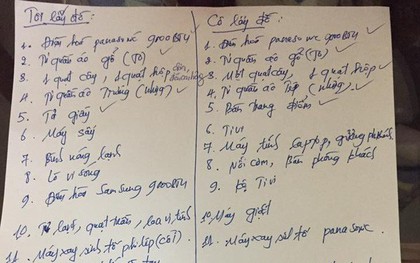 Tôi lấy đồ:
1. Điều hoà panasonic 9000BTU
2. Tủ quần áo gỗ (To)
3. 1 quạt cây, 1 quạt hộp
4. Tủ quần áo Trắng (nhựa)
5. Tủ giày
6. Máy sấy
7. Bình nóng lạnh
8. Lò vi sóng
9. Điều hoà Samsung 9000BTU
10. Tủ lạnh, quạt trần, loa vi tính
11. Máy xay sinh tố philip (cối)
Cô lấy đồ:
1. Điều hoà panasonic 9000BTU
2. Tủ quần áo gỗ (To)
3. Một quạt cây, 1 quạt hộp
4. Tủ quần áo (nhựa)
5. Bàn trang điểm
6. Ti vi
7. Máy tính laptop, giường
8. Nồi cơm, Bàn phòng khách
9. Kệ Ti vi
10. Máy giặt
11. Máy xay sinh tố panasonic